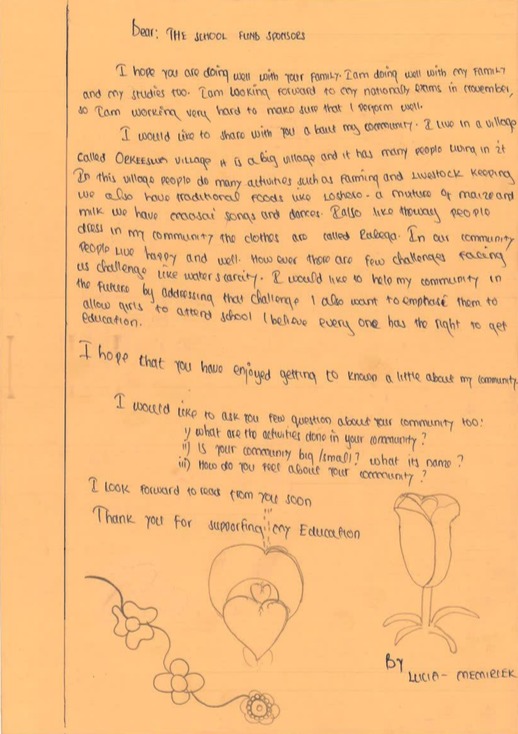 Dear: THE SCHOOL FUND SPONSORS
I hope you are doing well with your family. I am doing well with my family
and my studies too. I am looking forward to my nationally exams in november,
so I am working very hard to make sure that I perform well.
I would like to share with you a bout my community. I live in a village
called Olkeesun village it is a big village and it has many people living in it
In this village people do many activities such as farming and livestock keeping
we also have traditional foods like Loshoro - a mixture of maize and
milk we have maasai songs and dances. I also like the way people
dress in my community the clothes are called Rubega. In our community
people live happy and well. How ever there are few challenges facing
us challenge like water scarcity. I would like to help my community in
the future by addressing that challenge I also want to emphase them to
allow girls to attend school I believe every one has the right to get
education.
I hope that you have enjoyed getting to known a little about my community.
I would like to ask you few question about your community too:
i) what are the activities done in your community?
ii) Is your community big /small? what its name?
iii) How do you feel about your community?
I look forward to read from you soon
Thank you for supporting my Education
By
LUCIA - MEMIRIEK